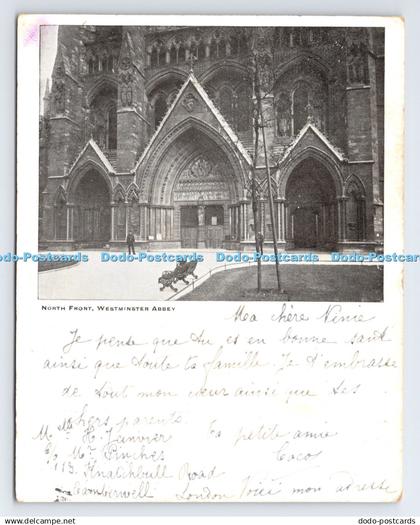 Dodo-Postcards Dodo-Postcards Dodo-Postcards Dodo-Postcards Dodo-Postcards
North Front, Westminster Abbey
Ma chère Ninie
Je pense que tu es en bonne santé
ainsi que toute ta famille. Je t'embrasse
de tout mon cœur ainsi que tes
chers parents.
Ta petite amie
Coco
Mlle H. Janvier
c/o Mr Pinches
113 Knatchbull Road
Camberwell London Voici mon adresse
www.dodo-postcards.com